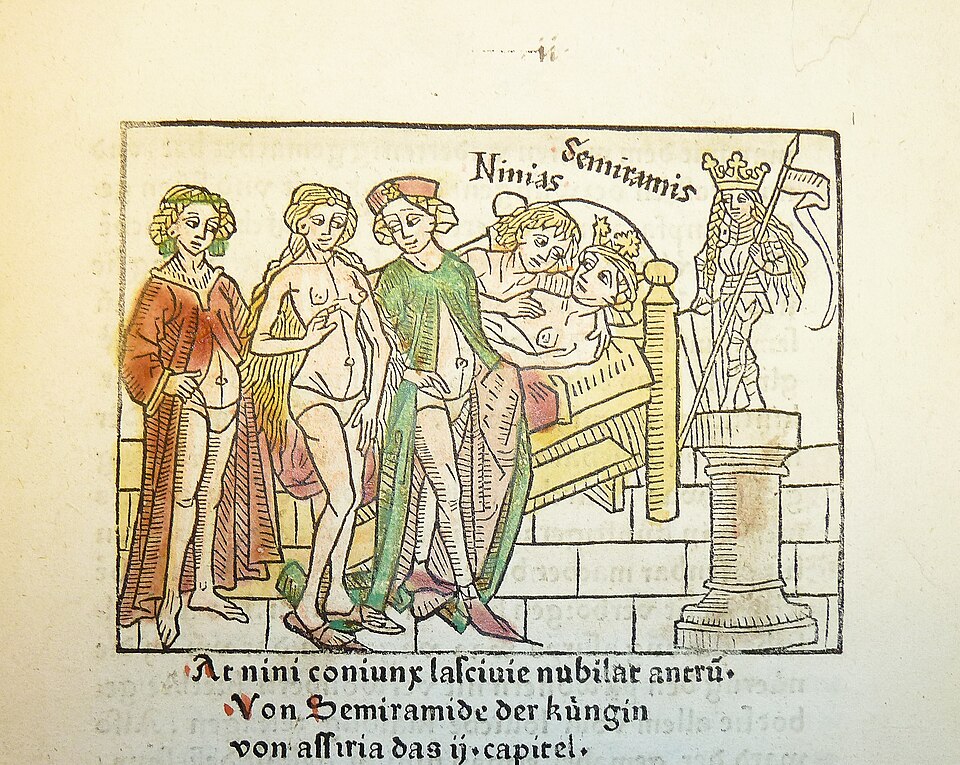 ii
Ninias Semiramis
At nini coniunx lasciuie nubilat antrū.
Von Semiramide der kùngin
von assiria das ij. capitel.